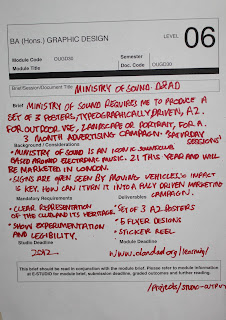 BA (Hons.) GRAPHIC DESIGN
LEVEL 06
Module Code OUGD30
Module Title
Semester
Doc. Code OUGD30
Brief/Session/Document Title MINISTRY OF SOUND. D&AD
Brief MINISTRY OF SOUND REQUIRES ME TO PRODUCE A
SET OF 3 POSTERS, TYPOGRAPHICALLY DRIVEN, A2.
FOR OUTDOOR USE, LANDSCAPE OR PORTRAIT, FOR A
3 MONTH ADVERTISING CAMPAIGN. 'SATURDAY
SESSIONS'
Background / Considerations
• MINISTRY OF SOUND IS AN ICONIC
BASED AROUND ELECTRONIC MUSIC. 21 THIS YEAR AND WILL
BE MARKETED IN LONDON.
• SIGNS ARE OFTEN SEEN BY MOVING VEHICLES so IMPACT
IS KEY. HOW CAN I TURN IT INTO A FULLY DRIVEN MARKETING
CAMPAIGN.
Mandatory Requirements
• CLEAR REPRESENTATION
OF THE CLUB AND ITS HERITAGE.
• SHOW EXPERIMENTATION
AND LEGIBILITY.
Deliverables
• SET OF 3 A2 POSTERS
• 5 FLYER DESIGNS
• STICKER REEL
Studio Deadline
Module Deadline
2012
www.dandad.org/learning/
This brief should be read in conjunction with the module brief. Please refer to module information
at E-STUDIO for module brief, submission deadline, graded outcomes and further reading.
/PROJECTS/STUDIO-OUTPUT